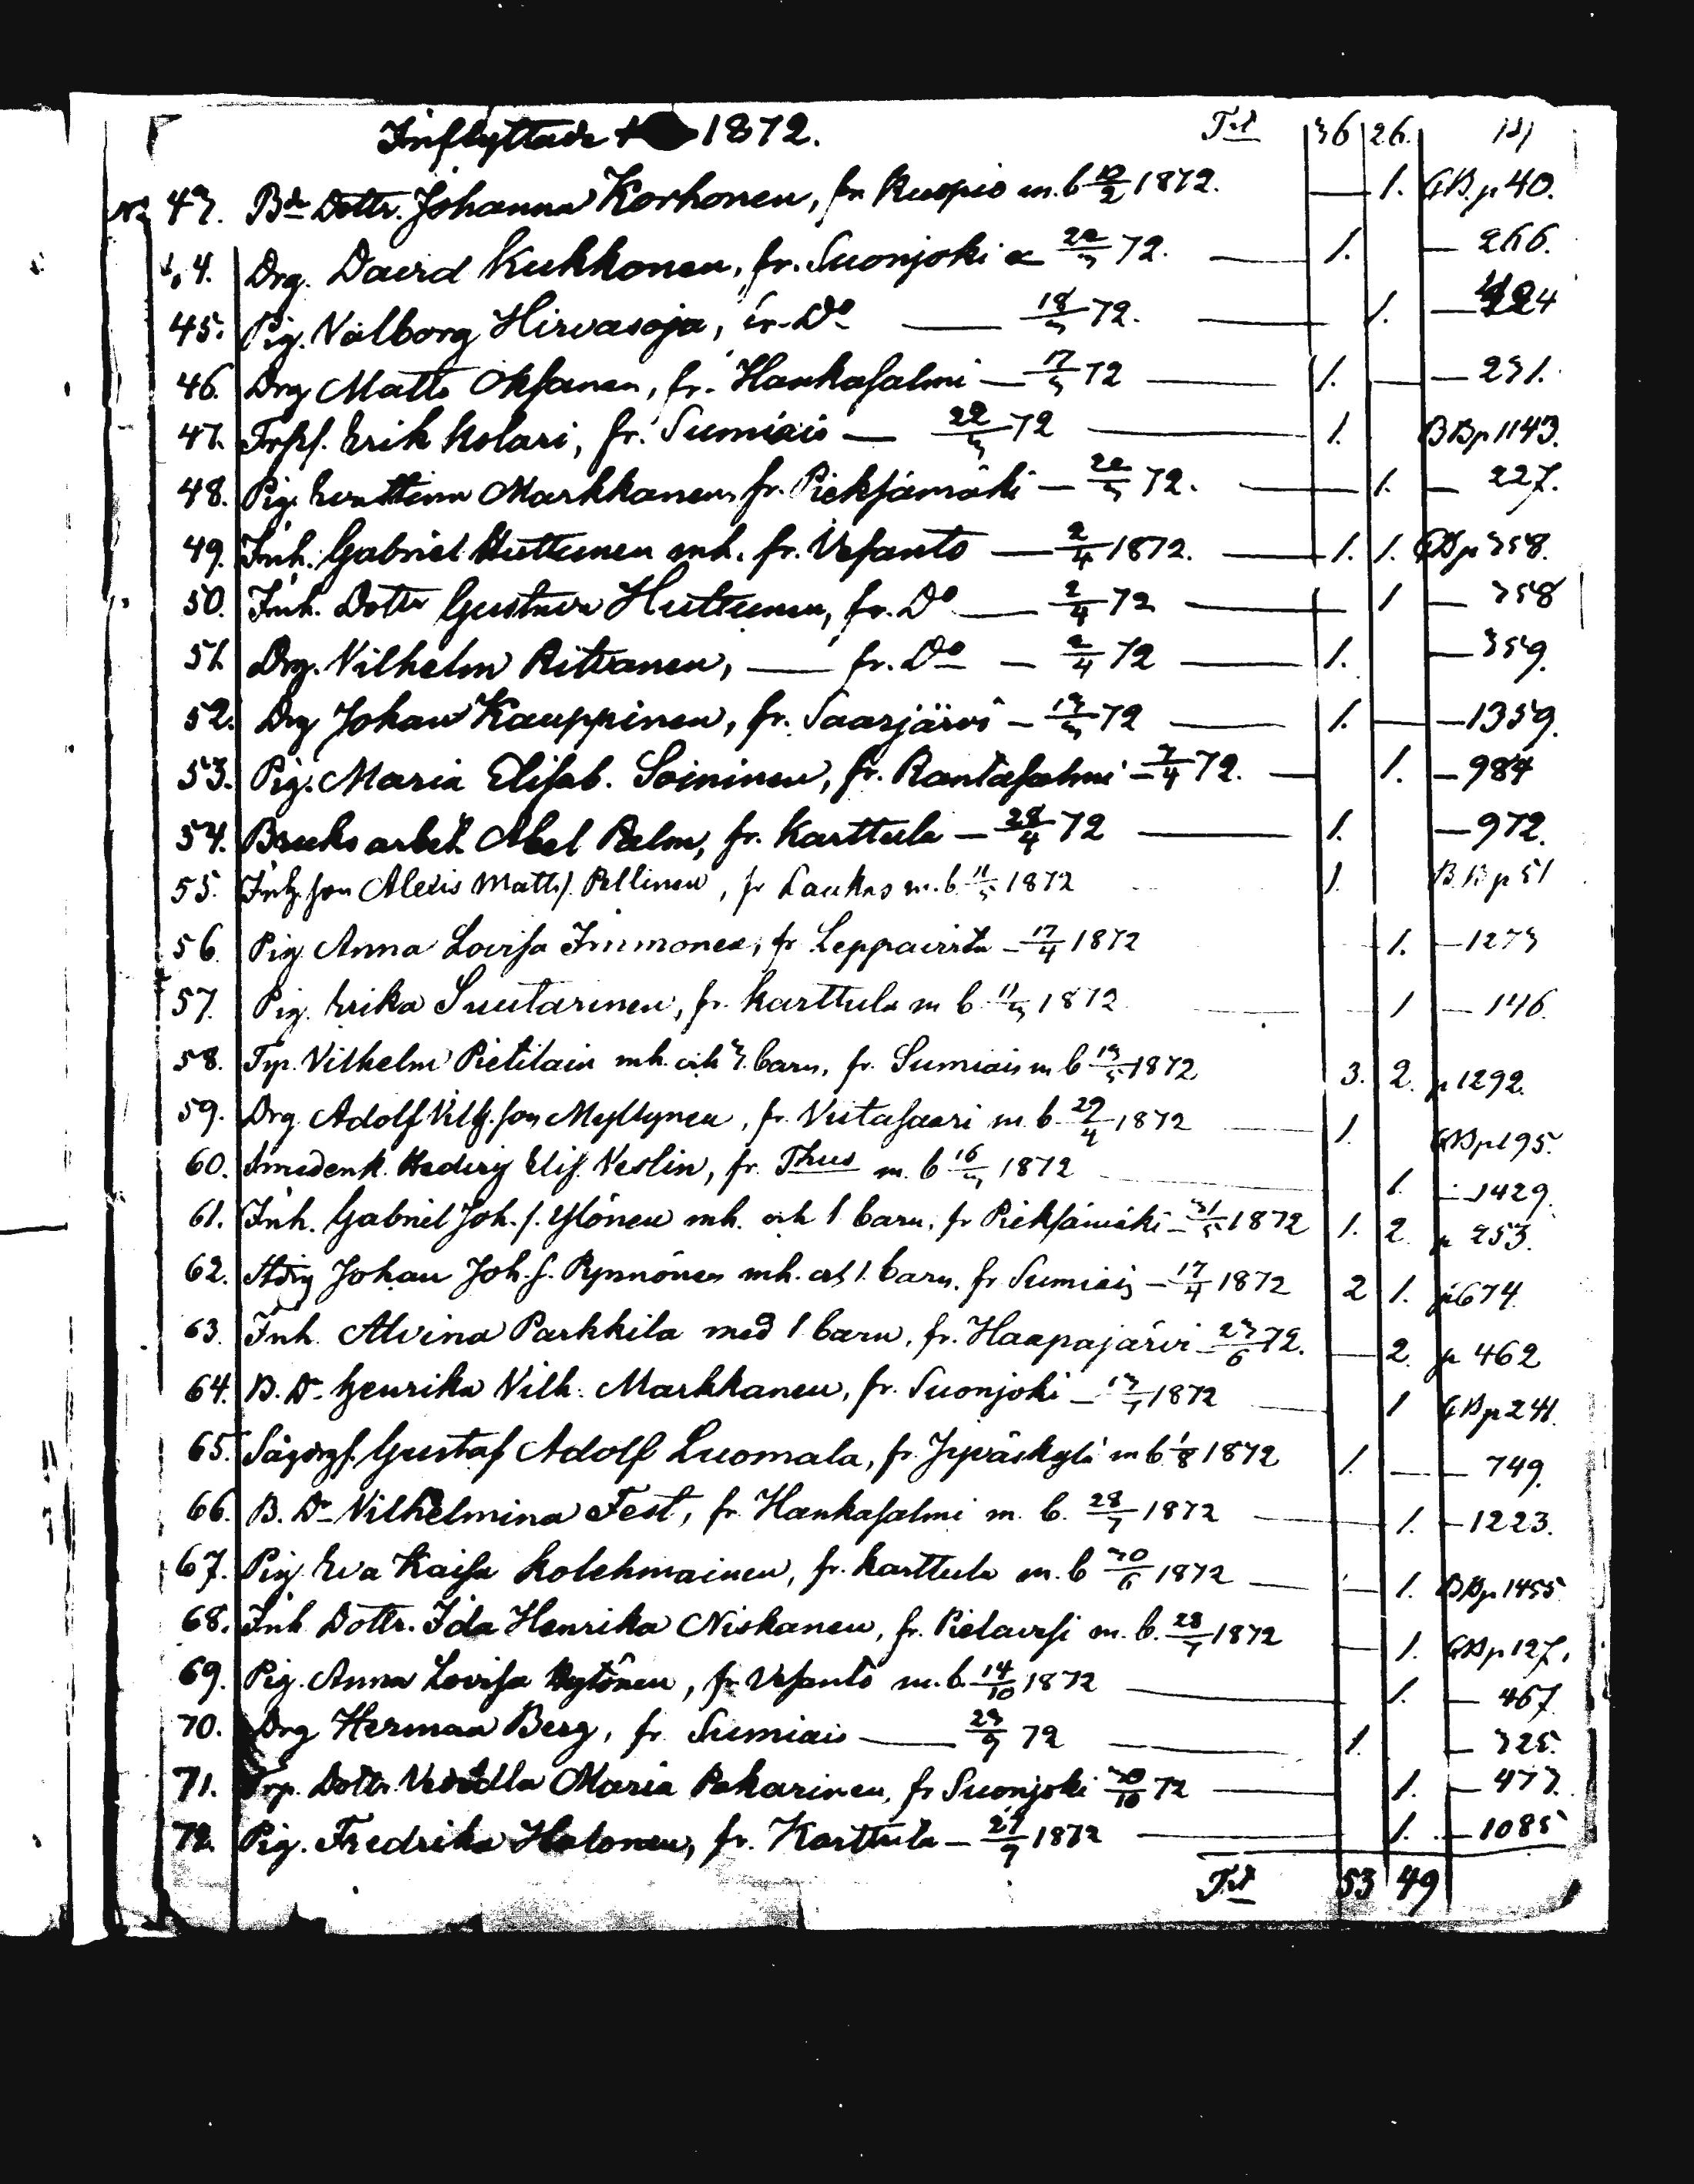 Inflyttade 1872. Trt 36 26. 
No 43. Bde Dottr. Johanna Korhonen, fr. Kuopio m. b 12/2 1872. — 1. GB. p 40.
44. Drg. David Kukkonen, fr. Suonjoki 22/3 72. — 1. — 266.
45. Pig. Valborg Hirvasoja, fr. Do — 18/3 72. — 1. —
46. Drg Matts Oksanen, fr. Hankasalmi — 17/3 72 — 1. — — 231.
47. Erik Kolari, fr. Sumiais — 22/3 72 — 1. BB p 1143.
48. Pig. Markkanen, fr. Pieksämäki — 22/3 72. — 1. — 227.
49. Inh. Gabriel Huttunen mh. fr. Vesanto — 2/4 1872. — 1. 1. GB p 358.
50. Inh. Dottr Gustava Huttunen, fr. Do — 2/4 72 — 1 — 358
51. Drg. Vilhelm Ritvanen, — fr. Do — 2/4 72 — 1. — 359.
52. Drg Johan Kauppinen, fr. Saarjärvi — 13/3 72 — 1. — — 1359.
53. Pig. Maria Elisab. Soininen, fr. Rantasalmi — 7/4 72. — 1. — 984
54. Bruks arbet. Abel Palm, fr. Karttula — 28/4 72 — 1. — 972.
55. Inh. son Alexis Matts. Pellinen, fr Laukas m. b. 11/5 1872 1. BB p 51
56. Pig. Anna Lovisa Immonen, fr Leppävirta — 17/4 1872 1. — 1273
57. Pig. Erika Suutarinen, fr. Karttula m b. 11/3 1872 — 1 — 146.
58. Trp. Vilhelm Pietiläin mh. och 3. barn, fr. Sumiais m b 13/5 1872 3. 2. p 1292.
59. Drg Adolf Vilh. son Myllynen, fr. Viitasaari m. b. 29/4 1872 — 1. GB p 195.
60. Smedenk. Hedvig Elis. Veslin, fr. Thus m. b 16/3 1872 1. — 1429.
61. Inh. Gabriel Joh. s. Ylönen mh. och 1 barn, fr Pieksämäki — 31/5 1872 1. 2. p 253.
62. Johan Joh. s. Rynnönen mh. och 1. barn. fr Sumiais — 17/4 1872 2 1. p 674.
63. Inh. Alvina Parkkila med 1 barn, fr. Haapajärvi — 23/6 72. — 2. p 462
64. B. Dr. Henrika Vilh. Markkanen, fr. Suonjoki — 13/7 1872 — 1 GB p 241.
65. Gustaf Adolf Luomala, fr. Jyväskylä m b 1/8 1872 1. — — 749.
66. B. Dr Vilhelmina Fest, fr. Hankasalmi m. b. 28/7 1872 — 1. — 1223.
67. Pig. Eva Kaisa Kolehmainen, fr. Karttula m. b 30/6 1872 — — 1. BB p 1455
68. Inh Dottr. Ida Henrika Niskanen, fr. Pielavesi m. b. 28/7 1872 — 1. GB p 127.
69. Pig. Anna Lovisa Kytönen, fr Vesanto m. b. 14/10 1872 — 1. — 467
70. Drg Herman Berg, fr. Sumiais — 23/9 72 — 1. — 325.
71. Trp. Dottr. Maria Pakarinen, fr Suonjoki 30/10 72 — 1. — 477.
72. Pig. Fredrika Halonen, fr. Karttula — 27/9 1872 — 1. — 1085
Trt 53 49